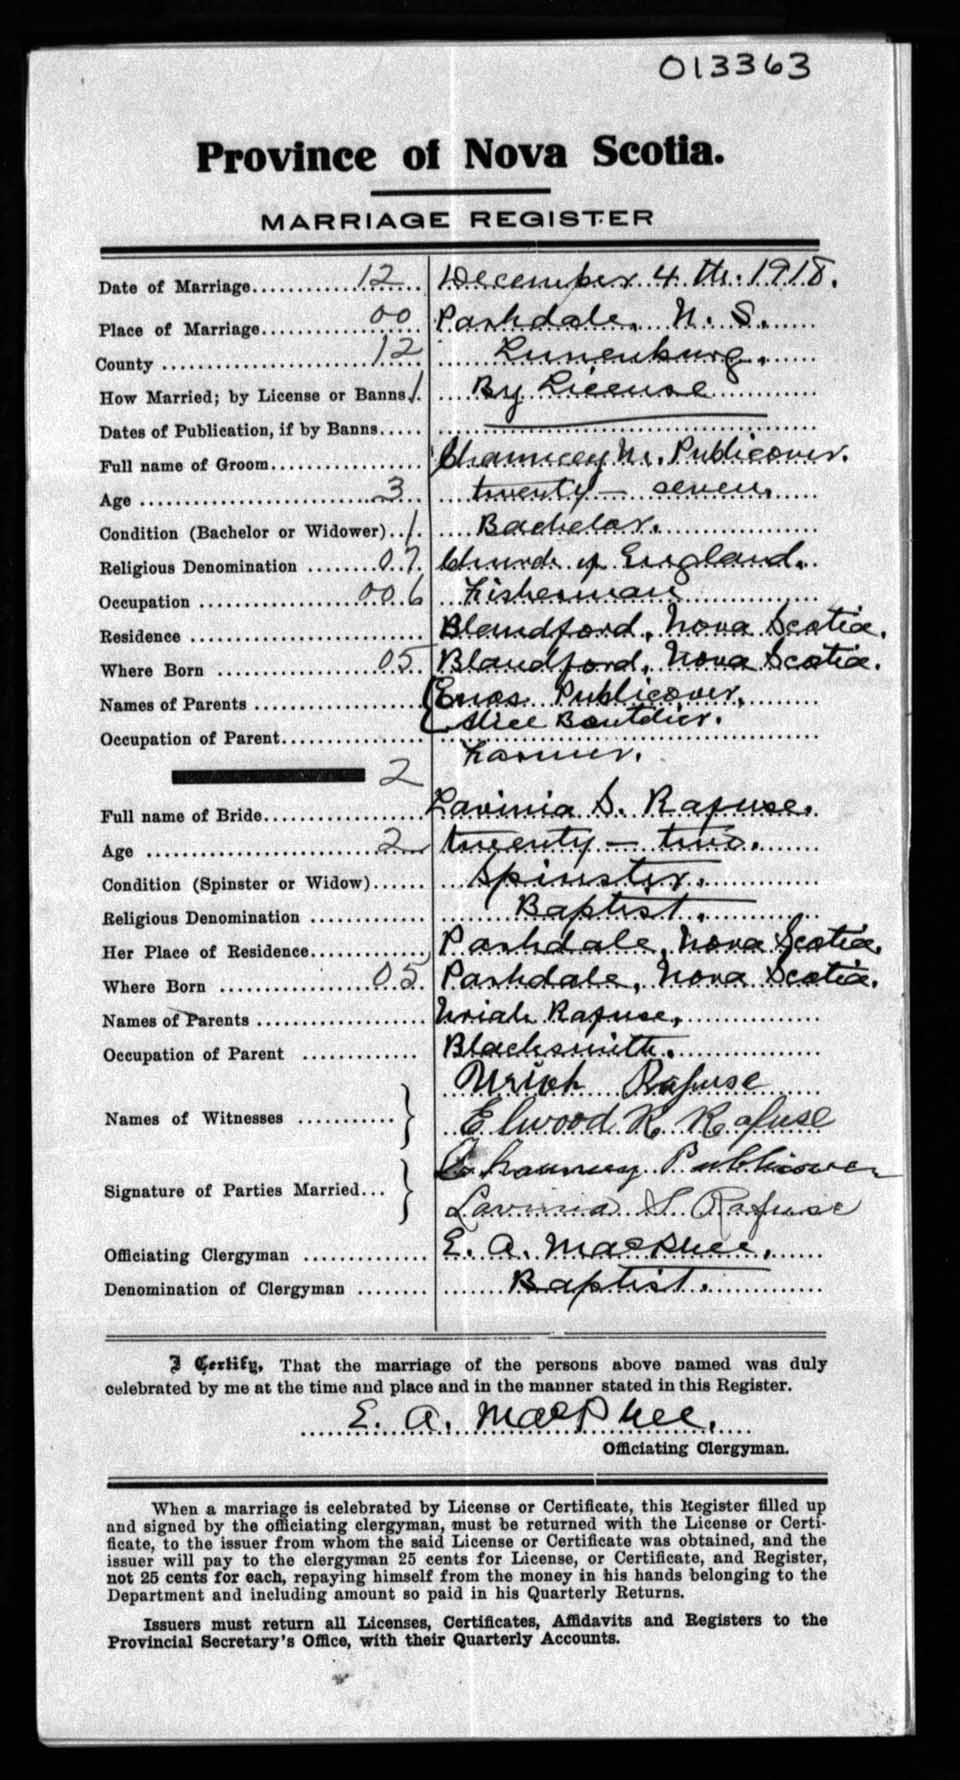 013363
Province of Nova Scotia.
MARRIAGE REGISTER
Date of Marriage............ 12 .... December 4th. 1918.
Place of Marriage............ 00 .... Parkdale, N. S.
County ............ 12 .... Lunenburg.
How Married; by License or Banns. 1. By License
Dates of Publication, if by Banns.....
Full name of Groom.................. Chauncey M. Publicover.
Age ............ 3 .... twenty-seven.
Condition (Bachelor or Widower).. 1. Bachelor.
Religious Denomination ........ 07. Church of England.
Occupation ............ 006 Fisherman
Residence ............ Blandford, Nova Scotia.
Where Born ............ 05 Blandford, Nova Scotia.
Names of Parents ............ { Enos Publicover.
Alice Boutilier.
Occupation of Parent............
Farmer.
2
Full name of Bride............ Lavinia S. Rafuse.
Age ............ 2 twenty-two.
Condition (Spinster or Widow)...... Spinster.
Religious Denomination ............ Baptist.
Her Place of Residence............ Parkdale, Nova Scotia.
Where Born ............ 05 Parkdale, Nova Scotia.
Names of Parents ............ Uriah Rafuse,
Occupation of Parent ............ Blacksmith.
Uriah Rafuse
Names of Witnesses ........... } Elwood R. Rafuse
Chauncey Publicover
Signature of Parties Married... }
Lavinia S Rafuse
Officiating Clergyman ............ E. A. MacPhee.
Denomination of Clergyman ........ Baptist.
I Certify, That the marriage of the persons above named was duly
celebrated by me at the time and place and in the manner stated in this Register.
E. A. MacPhee.
Officiating Clergyman.
When a marriage is celebrated by License or Certificate, this Register filled up
and signed by the officiating clergyman, must be returned with the License or Certi-
ficate, to the issuer from whom the said License or Certificate was obtained, and the
issuer will pay to the clergyman 25 cents for License, or Certificate, and Register,
not 25 cents for each, repaying himself from the money in his hands belonging to the
Department and including amount so paid in his Quarterly Returns.
Issuers must return all Licenses, Certificates, Affidavits and Registers to the
Provincial Secretary's Office, with their Quarterly Accounts.